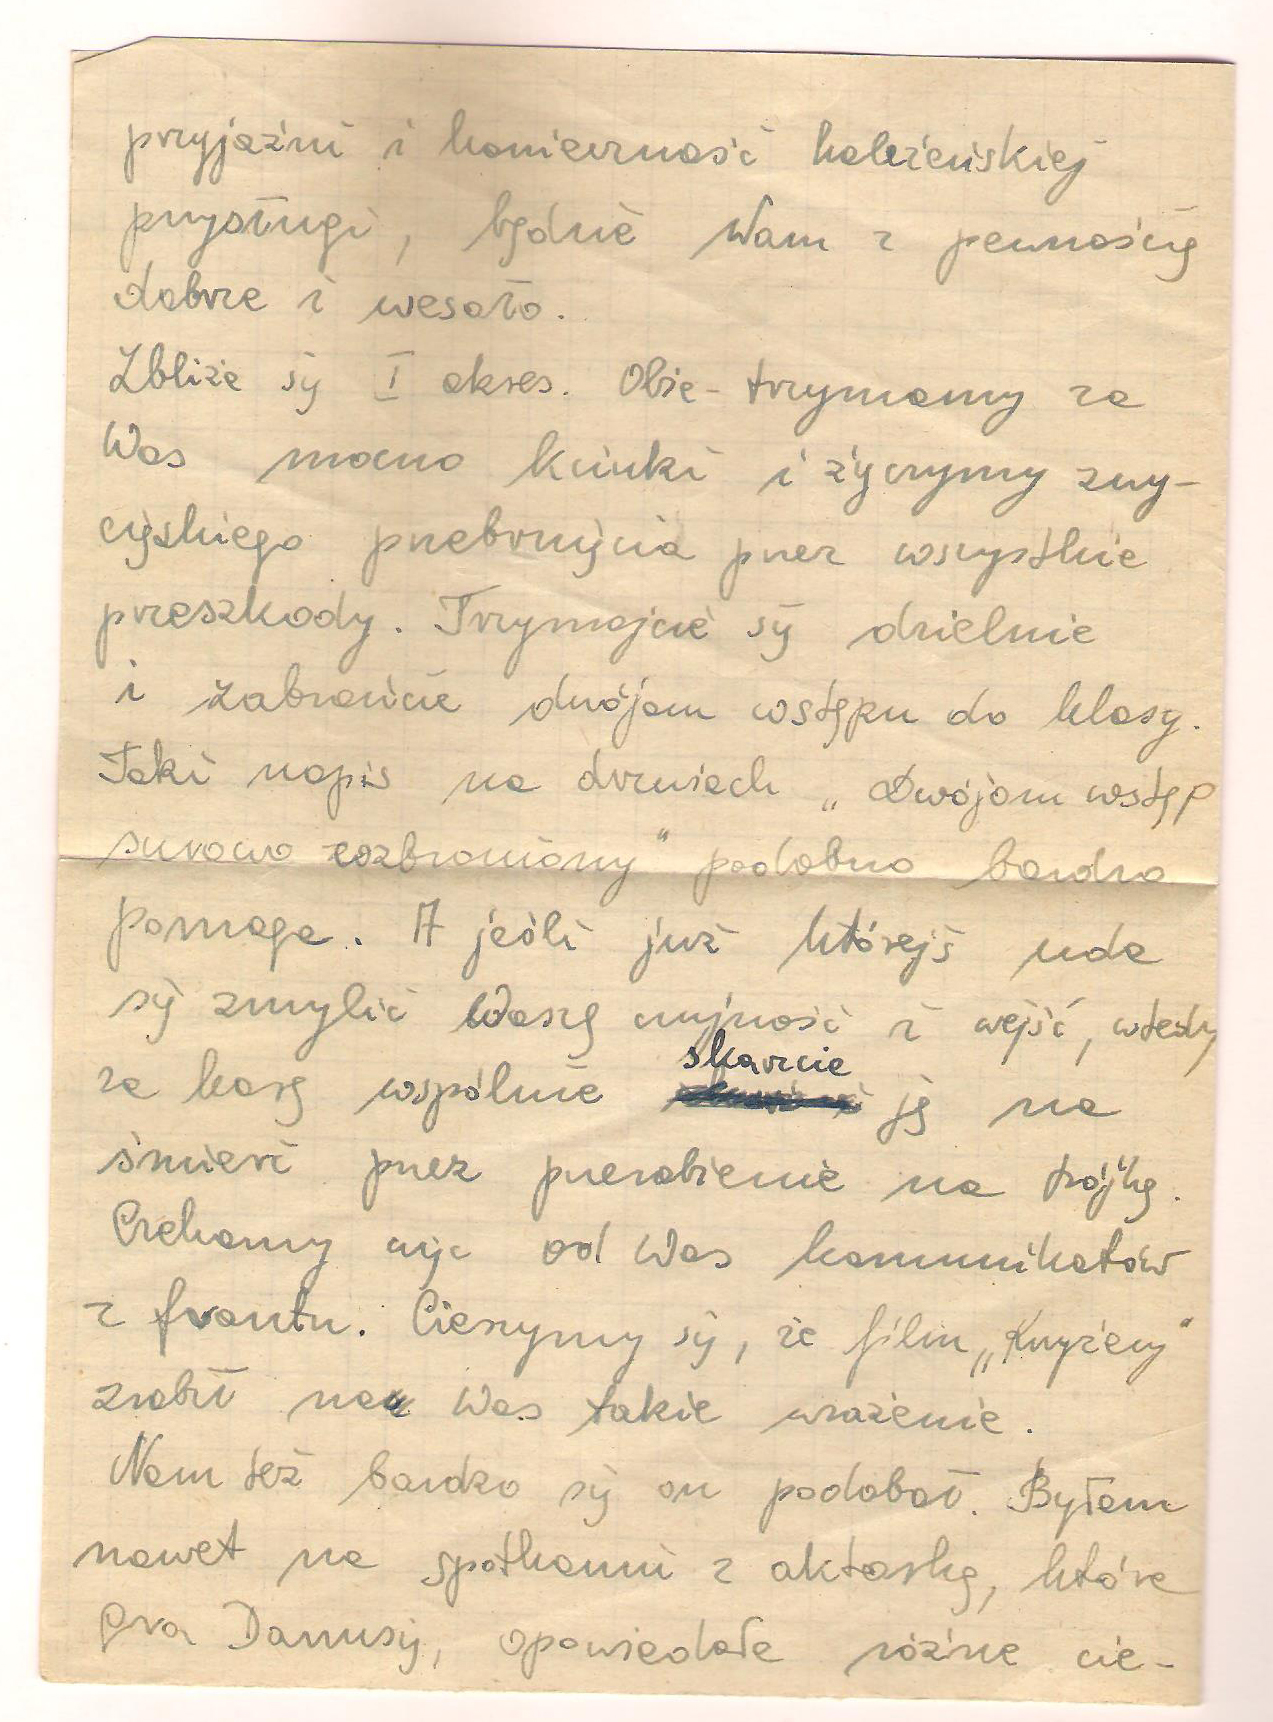 przyjaźni i konieczność koleżeńskiej
przysługi, będzie Wam z pewnością
dobrze i wesoło.
Zbliża się I okres. Obie-trzymamy za
Was mocno kciuki i życzymy zwy-
cięskiego przebrnięcia przez wszystkie
przeszkody. Trzymajcie się dzielnie
i zabrońcie dwójom wstępu do klasy.
Taki napis na drzwiach „Dwójom wstęp
surowo wzbroniony" podobno bardzo
pomaga. A jeśli już którejś uda
się zmylić Waszą czujność i wejść, wtedy
za karę wspólnie skarzcie ją na
śmierć przez przerobienie na trójkę.
Czekamy więc od Was komunikatów
z frontu. Cieszymy się, że film „Krzyżacy"
zrobił na Was takie wrażenie.
Nam też bardzo się on podobał. Byłam
nawet na spotkaniu z aktorką, która
gra Danusię, opowiadała różne cie-